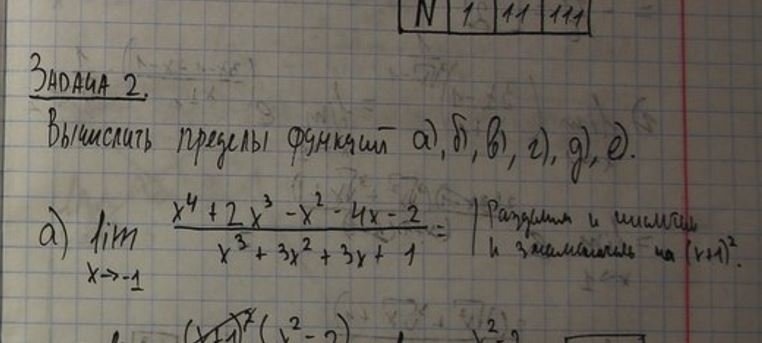 N 1 11 111
Задача 2.
Вычислить пределы функций а), б), в), г), д), е).
а) lim x→-1 (x⁴ + 2x³ - x² - 4x - 2) / (x³ + 3x² + 3x + 1) = | Разделим и числитель
и знаменатель на (x+1)².
(x+1)² (x² - 2)